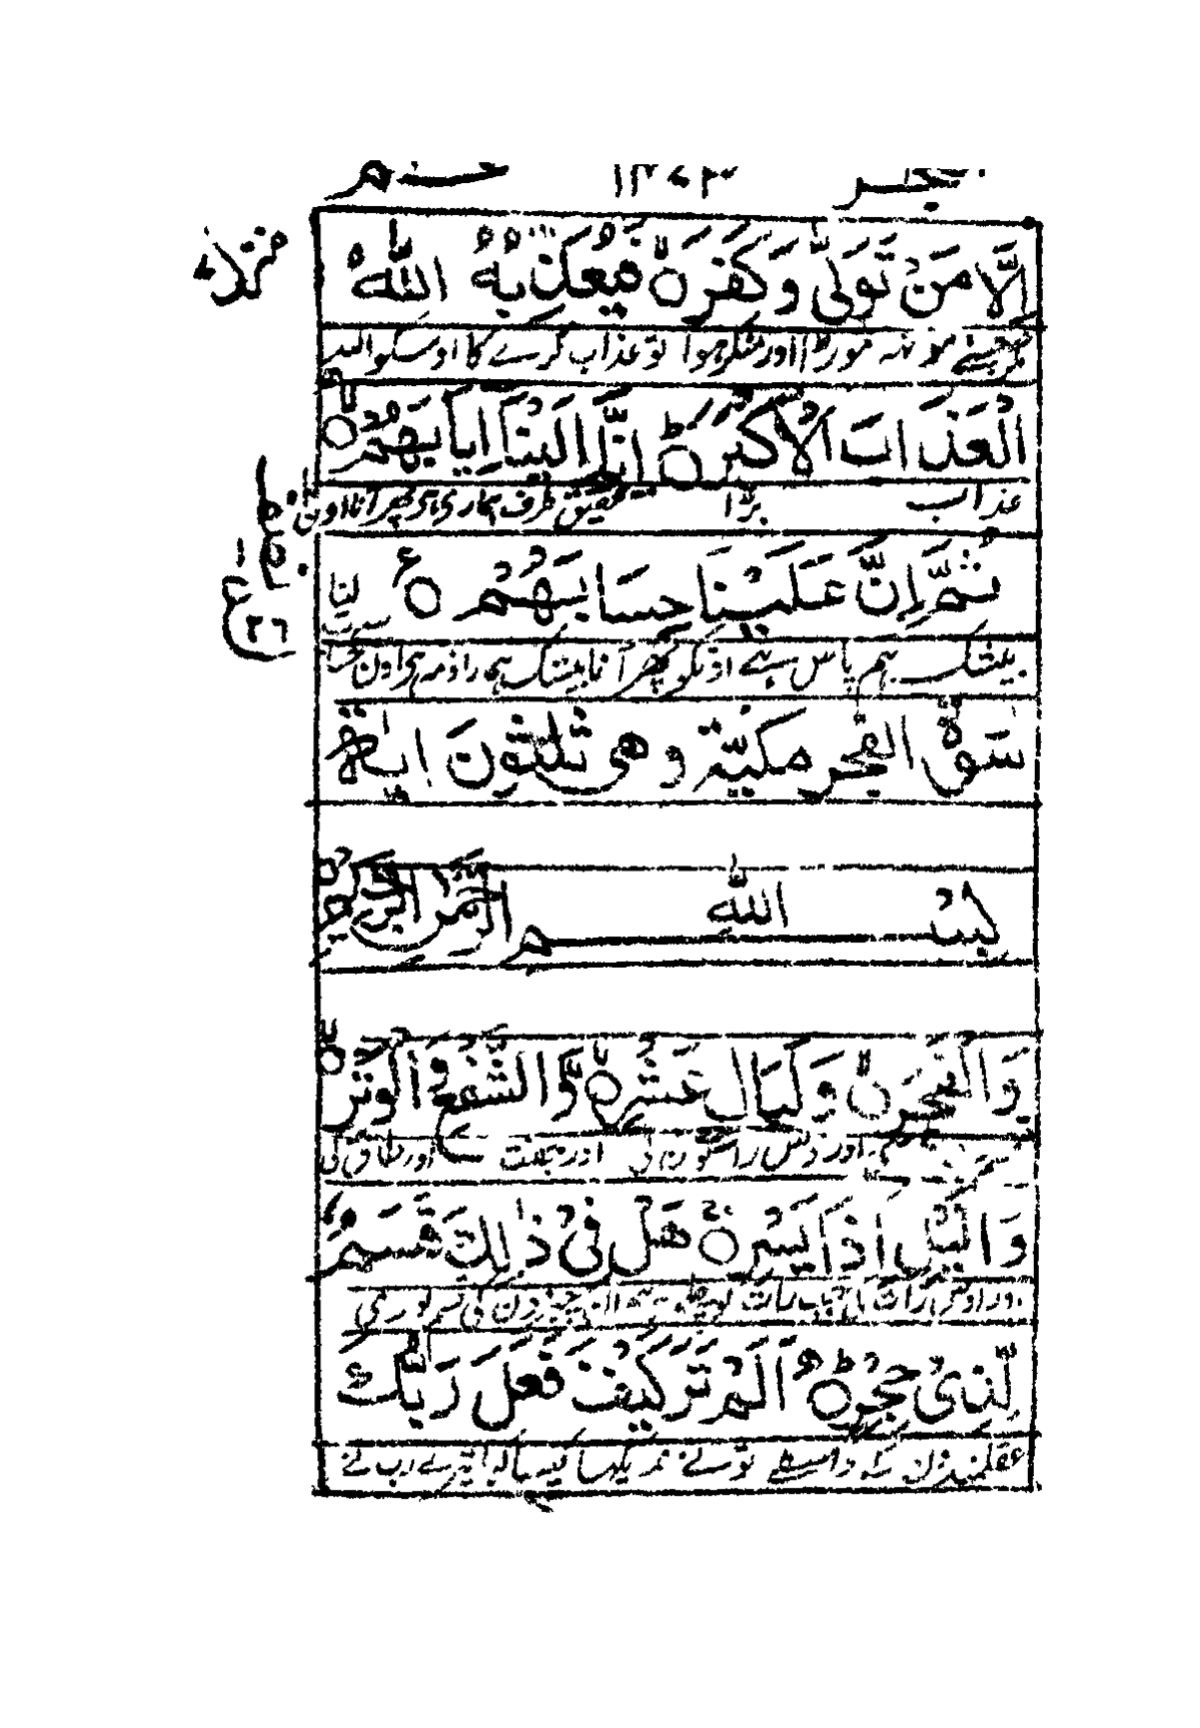 الفجر ١٢٧٣ عم
منزل ٧
اِلَّا مَنْ تَوَلّٰى وَكَفَرَ ۙ فَيُعَذِّبُهُ اللّٰهُ
مونہ موڑا اور منکر ہوا تو عذاب کرے گا اوسکو اللہ
الْعَذَابَ الْاَكْبَرَ ؕ اِنَّ اِلَيْنَاۤ اِيَابَهُمْ ۙ
عذاب بڑا تحقیق طرف ہماری ہی پھر آنا اون
ثُمَّ اِنَّ عَلَيْنَا حِسَابَهُمْ ۠
ع ٢٦
بیشک ہم پاس ہے اونکو پھر آنا بیشک ہمارا ذمہ ہی اون
سورة الفجر مكيّة وهى ثلثون اٰية
بِسْمِ اللّٰهِ الرَّحْمٰنِ الرَّحِيْمِ
وَالْفَجْرِ ۙ وَلَيَالٍ عَشْرٍ ۙ وَّالشَّفْعِ وَالْوَتْرِ ۙ
اور دس راتوں کی اور جفت اور طاق کی
وَالَّيْلِ اِذَا يَسْرِ ۚ هَلْ فِىْ ذٰلِكَ قَسَمٌ
جب رات چیزون کی قسم پوری
لِّذِىْ حِجْرٍ ؕ اَلَمْ تَرَ كَيْفَ فَعَلَ رَبُّكَ
عقلمندون کے واسطے تونے نہ دیکھا کیسا کیا تیرے رب نے